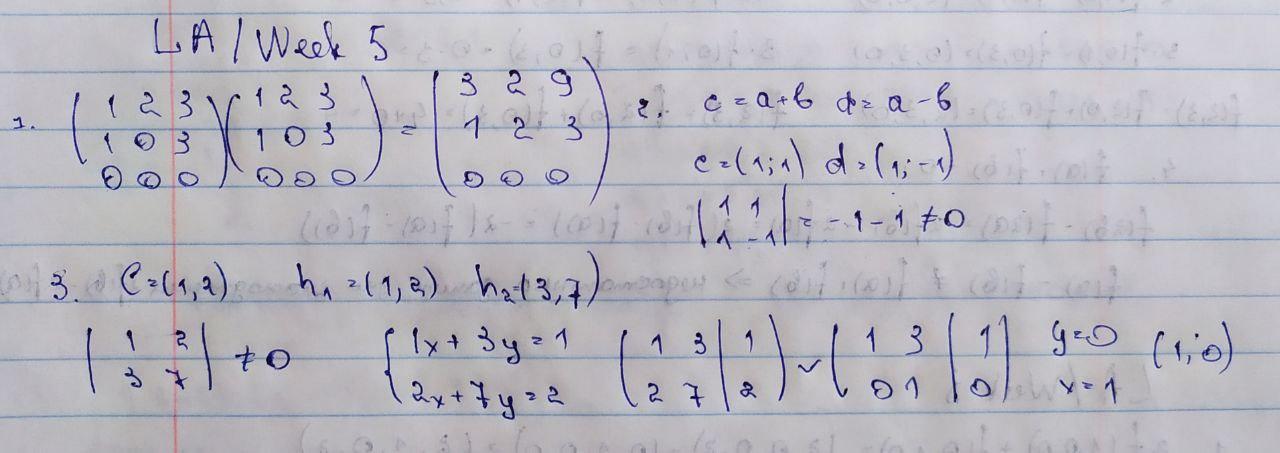 LA / Week 5
1. (1 2 3; 1 0 3; 0 0 0) (1 2 3; 1 0 3; 0 0 0) = (3 2 9; 1 2 3; 0 0 0)
2. c = a+b d = a-b
c = (1; 1) d = (1; -1)
|1 1; 1 -1| = -1 - 1 ≠ 0
3. C = (1, 2) h₁ = (1, 2) h₂ = (3, 7)
|1 2; 3 7| ≠ 0 {1x + 3y = 1; 2x + 7y = 2 (1 3 | 1; 2 7 | 2) ~ (1 3 | 1; 0 1 | 0) y=0 x=1 (1; 0)